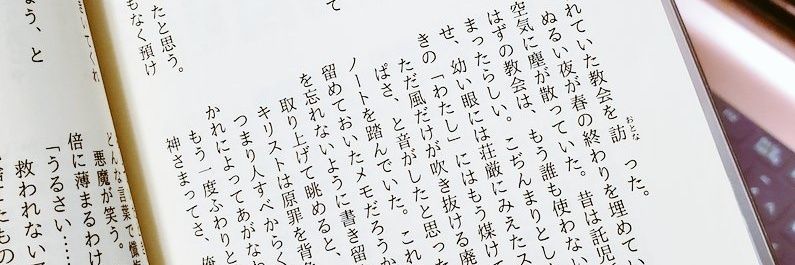 れていた教会を訪った。
おとな
ぬるい夜が春の終わりを埋めてい
空気に塵が散っていた。昔は託児
はずの教会は、もう誰も使わない
まったらしい。こぢんまりとした
せ、幼い眼には荘厳にみえたス
きの「わたし」にはもう煤けて
ただ風だけが吹き抜ける廃
ぱさ、と音がしたと思った
ノートを踏んでいた。これ
留めておいたメモだろうか
を忘れないように書き留
取り上げて眺めると、
キリストは原罪を背負
つまり人すべからく
かれによってあがな
もう一度ふわりと
神さまってさ、俺
て
たと思う。
もなく預け
どんな言葉で
悪魔が笑う。
倍に薄まるわけ
「うるさい……
救われない
してくれ
よう、と